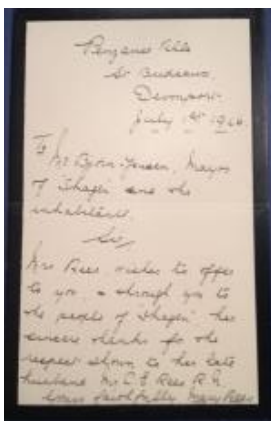 Penzance Villa
St Budeaux
Devonport
July 1st 1916.
To
Mr Bjorn-Jensen, Mayor
of Skagen and the
inhabitants.
Sir,
Mrs Rees wishes to offer
to you, & through you to
the people of Skagen her
sincere thanks for the
respect shown to her late
husband Mr C E Rees R.N.
Yours faithfully Mary Rees